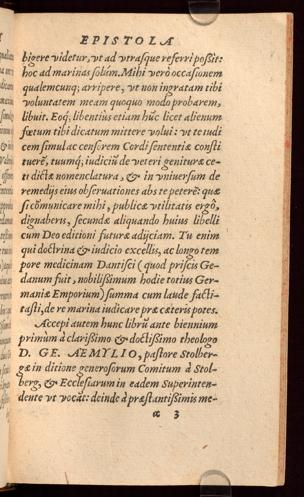 EPISTOLA
bigere videtur, vt ad vtrasque referri possit:
hoc ad marinas solùm. Mihi verò occasionem
qualemcunq; arripere, vt non ingratam tibi
voluntatem meam quoquo modo probarem,
libuit. Eoq; libentius etiam hûc licet alienum
fœtum tibi dicatum mittere volui: vt te iudi
cem simul ac censorem Cordi sententiæ consti
tuerē, tuumq́; iudiciū de veteri genituræ ce-
ti dictæ nomenclatura, & in vniuersum de
remedijs eius obseruationes abs te peterē: quæ
si cōmunicare mihi, publicæ vtilitatis ergô,
dignaberis, secundæ aliquando huius libelli
cum Deo editioni futuræ adijciam. Tu enim
qui doctrina & iudicio excellis, ac longo tem
pore medicinam Dantisci (quod priscis Ge-
danum fuit, nobilissimum hodie totius Ger-
maniæ Emporium) summa cum laude facti-
tasti, de re marina iudicare præ cæteris potes.
Accepi autem hunc librū ante biennium
primum à clarissimo & doctissimo theologo
D. GE. AEMYLIO, pastore Stolber-
gæ in ditione generosorum Comitum à Stol-
berg, & Ecclesiarum in eadem Superinten-
dente vt vocāt: deinde à præstantissimis me-
α 3